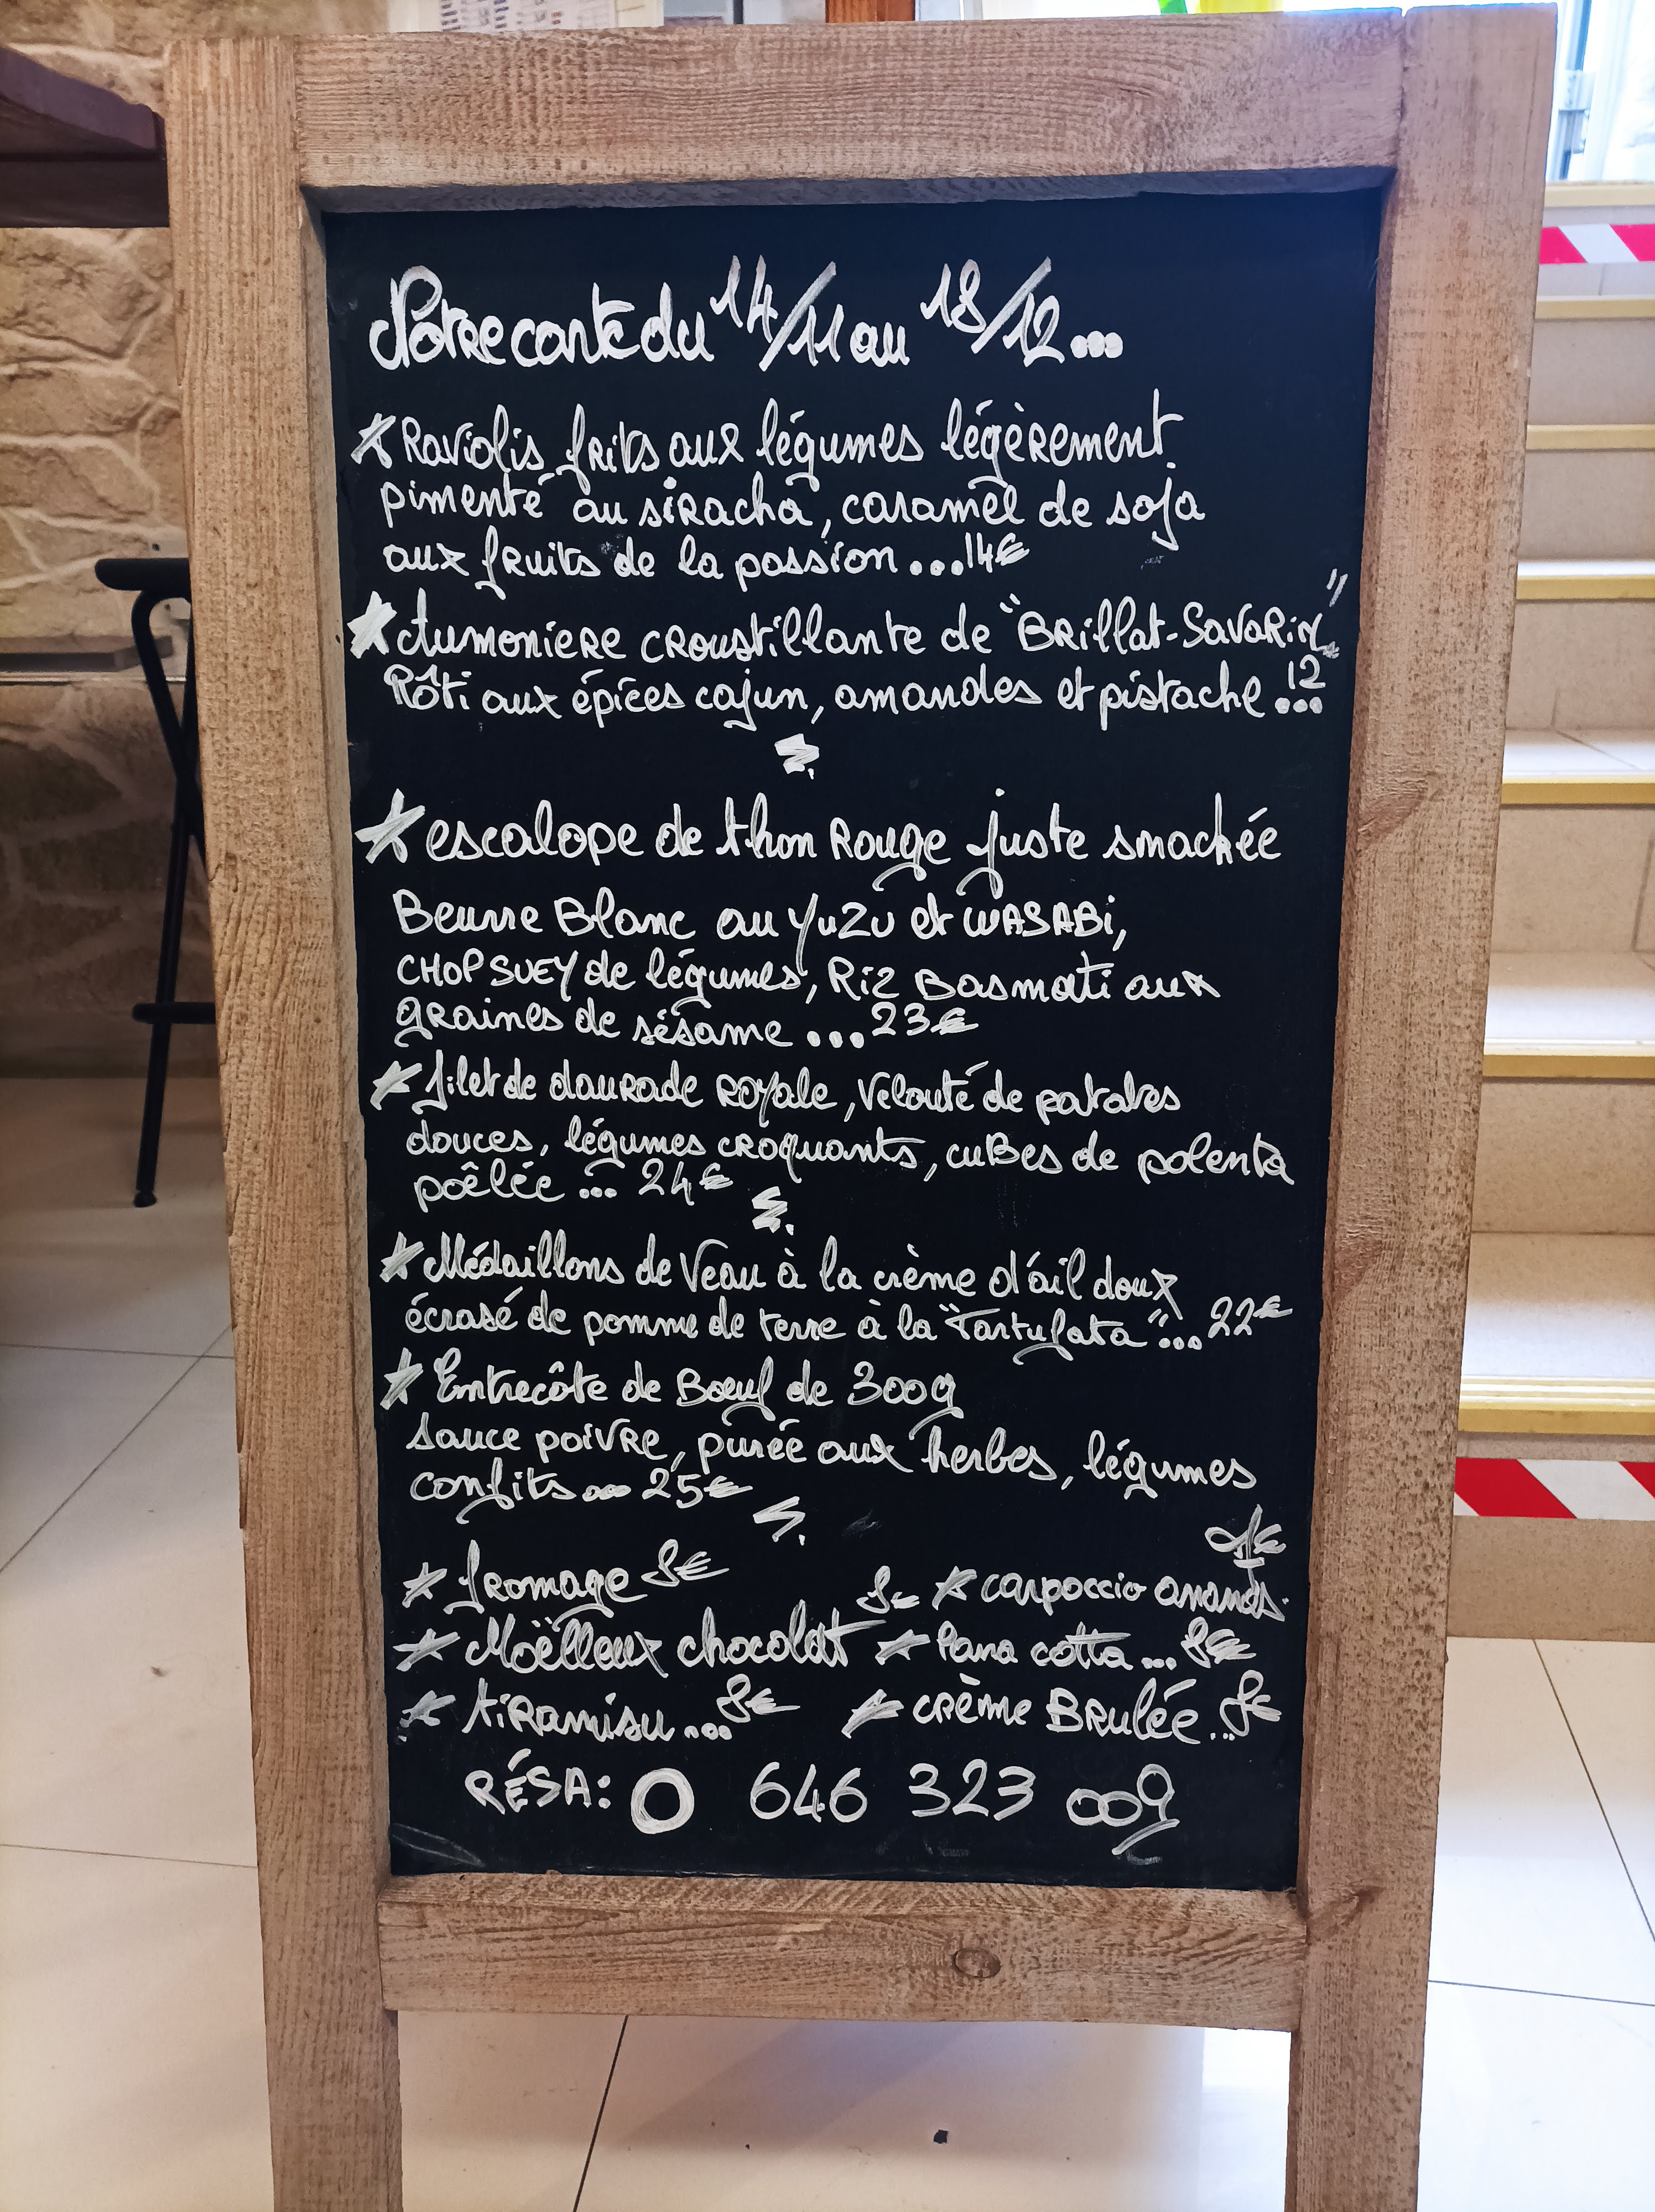 Notre carte du 14/11 au 18/12...
* Raviolis frits aux légumes légèrement
pimenté au siracha, caramel de soja
aux fruits de la passion ...14€
* Aumoniere croustillante de "Brillat-Savarin"
Rôti aux épices cajun, amandes et pistache ...12€
* escalope de thon Rouge juste smackée
Beurre Blanc au yuzu et WASABi,
CHOP SUEY de légumes, Riz Basmati aux
graines de sésame ... 23€
* filet de daurade royale, velouté de patates
douces, légumes croquants, cubes de polenta
poêlée ... 24€
* Médaillons de Veau à la crème d'ail doux
écrasé de pomme de terre à la "Tartufata"... 22€
* Entrecôte de Bœuf de 300g
sauce poivre, purée aux herbes, légumes
confits ... 25€
* fromage 8€ * carpaccio ananas.
* Moëlleux chocolat 8€ * Pana cotta ... 8€
* tiramisu ... 8€ * crème Brulée... 8€
RÉSA: 0 646 323 009